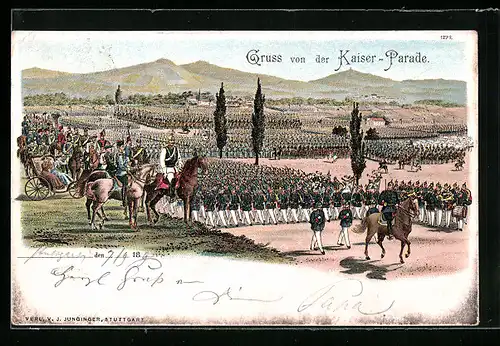 1272.
Gruss von der Kaiser-Parade.
den 7/9 18
Herzl. Gruß
Dein Papa
VERL. V. J. JUNGINGER, STUTTGART